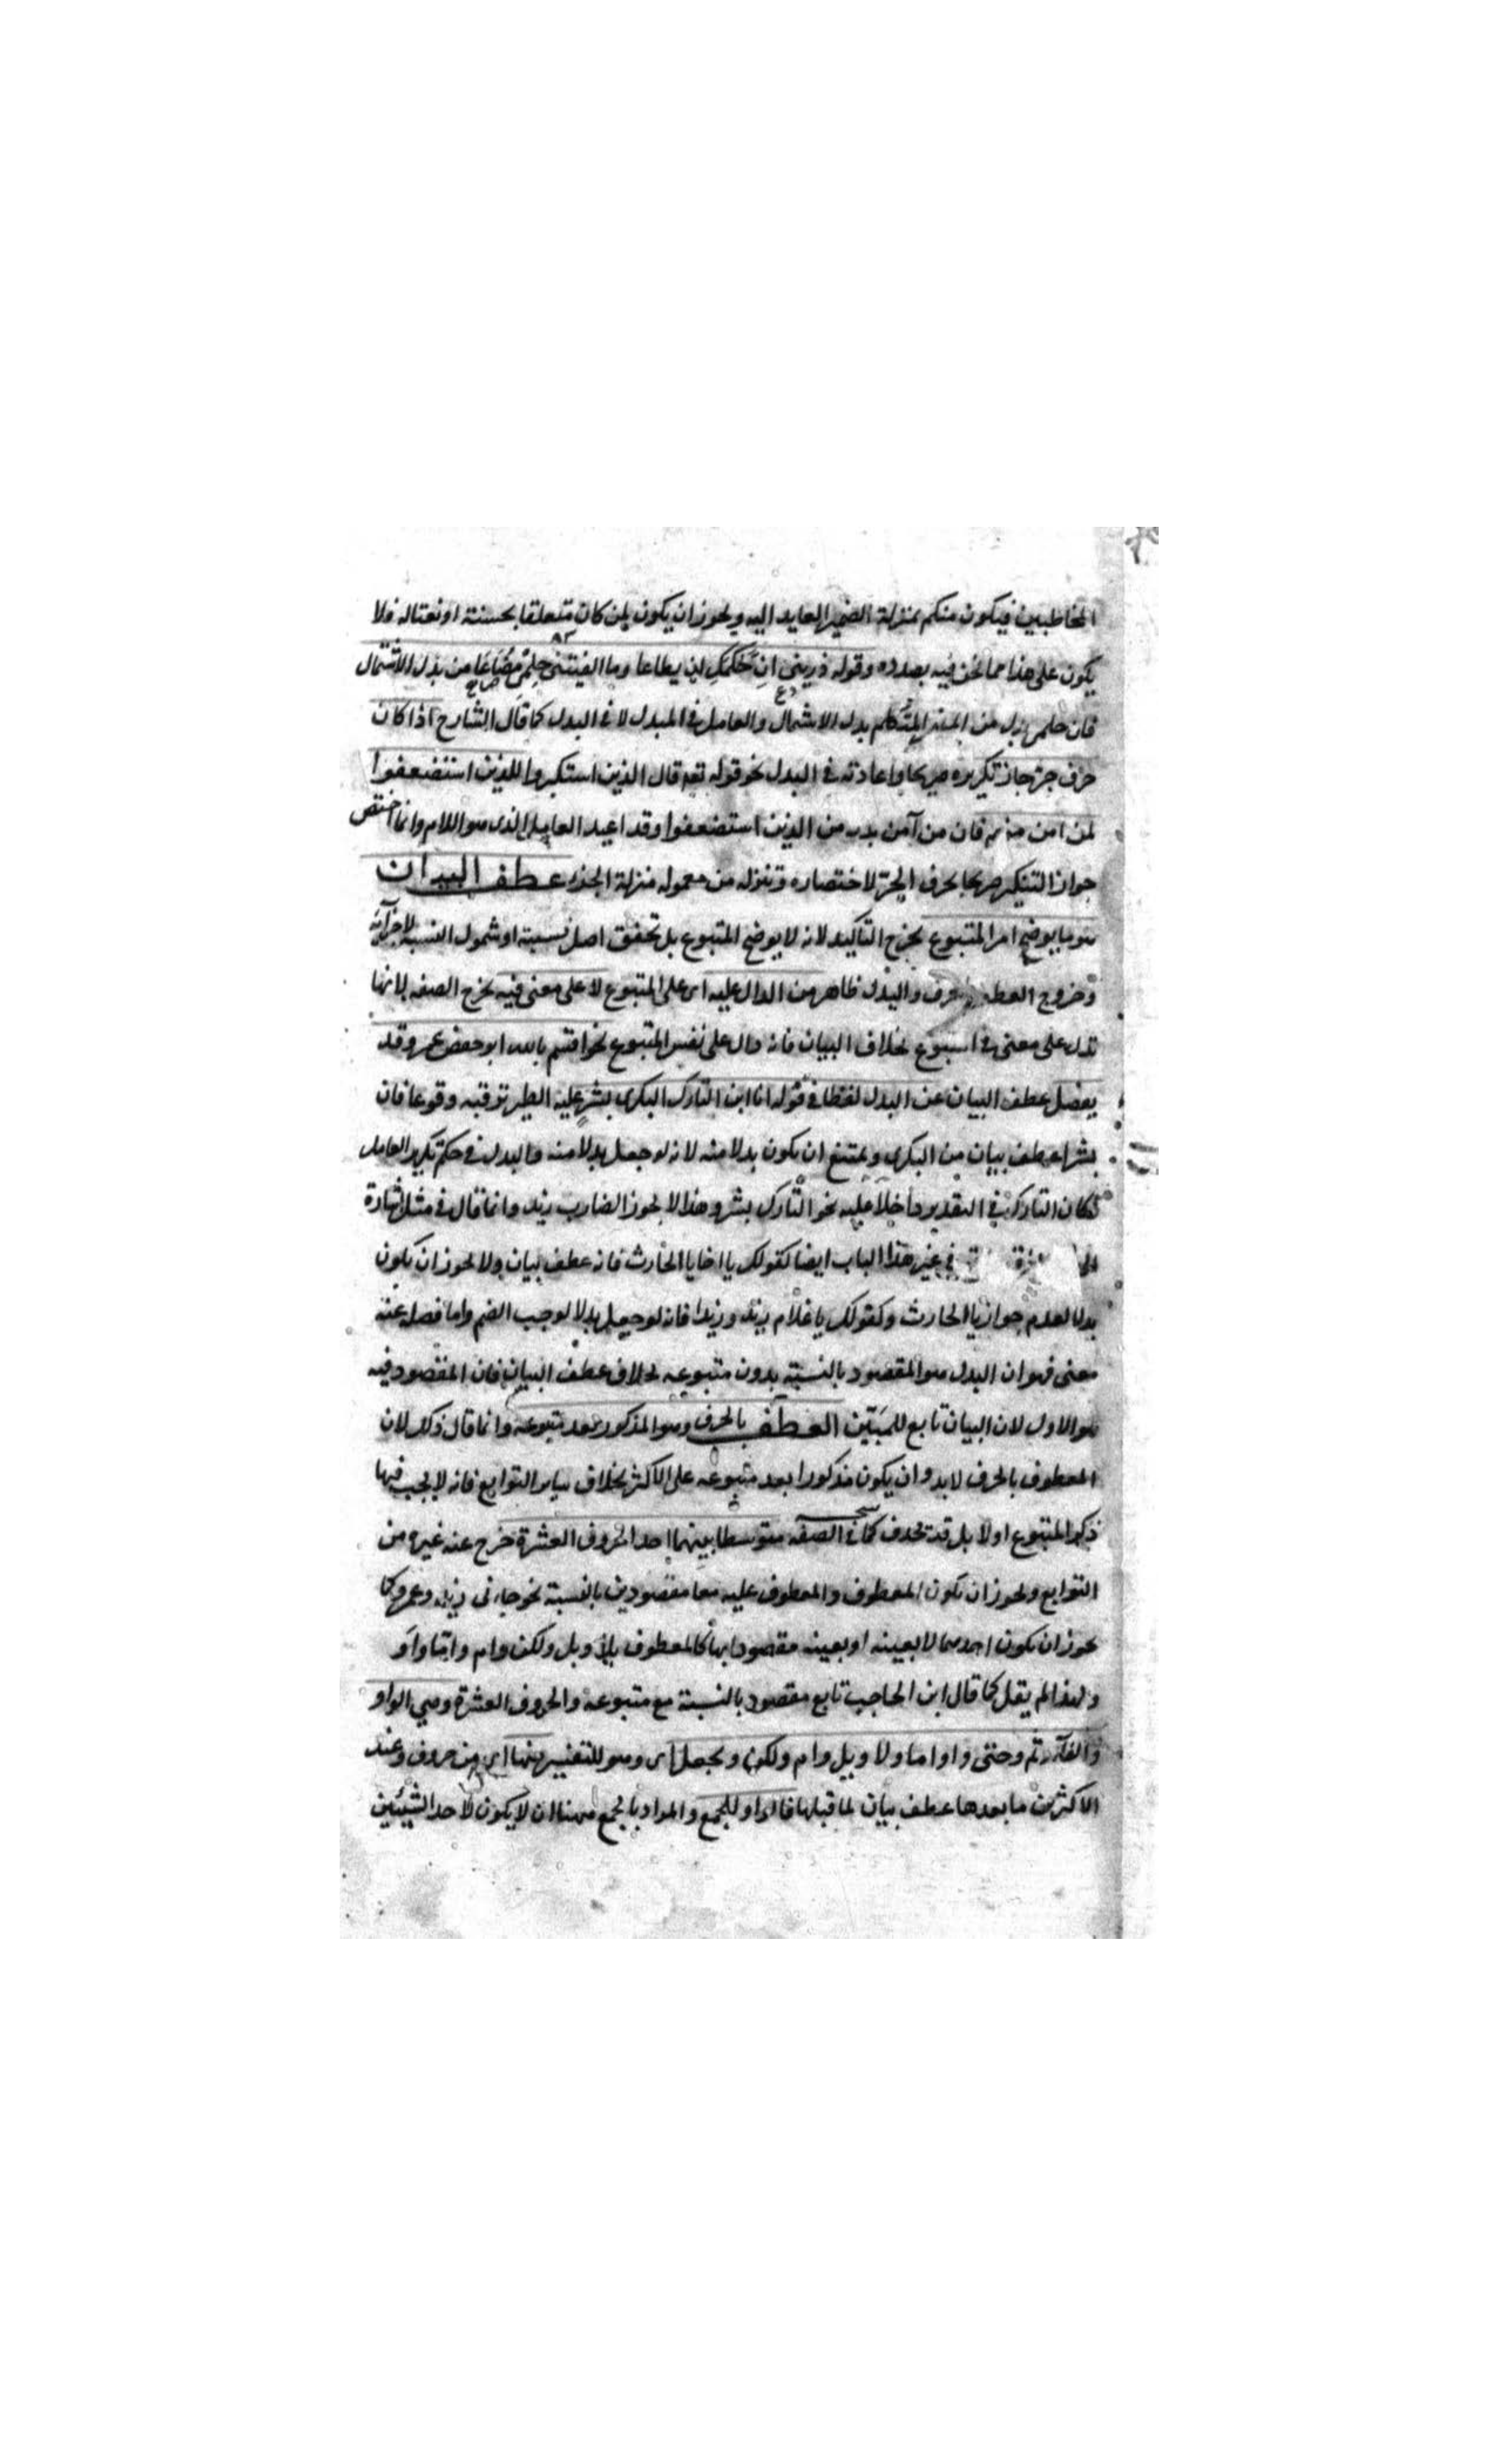 المخاطبين فيكون منكم بمنزلة الضمير العايد اليه ويجوز ان يكون لمن كان متعلقا بحسنة او نعتاله فلا
يكون على هذا مما نحن فيه بصدده وقوله ذرينى ان حكمك لن يطاعا وما الفيتنى حلمى مضاعا من بدل الاشتمال
فان حلمى بدل من المتكلم بدل الاشتمال والعامل فى المبدل لا فى البدل كما قال الشارح اذا كان
حرف جر جاز تكريره صريحا واعادته فى البدل نحو قوله تعه قال الذين استكبروا للذين استضعفوا
لمن امن منهم فان من آمن بدل من الذين استضعفوا وقد اعيد العامل الذى هو اللام وانما اختص
جواز التكرير صريحا بحرف الجر لاختصاره وتنزله من معموله منزلة الجزء عطف البيان
هو ما يوضح امر المتبوع يخرج التاكيد لانه لا يوضح المتبوع بل تحقق اصل نسبته او شمول النسبة لاجزآئه
وخروج العطف والبدل ظاهر من الدال عليه اى على المتبوع لا على معنى فيه يخرج الصفه لانها
تدل على معنى فى المتبوع بخلاف البيان فانه دال على نفس المتبوع نحو اقسم بالله ابو حفص عمر وقد
يفصل عطف البيان عن البدل لفظا فى قوله انا ابن التارك البكرى بشر عليه الطير ترقبه وقوعا فان
بشرا عطف بيان من البكرى ويمتنع ان يكون بدلا منه لانه لو جعل بدلا منه والبدل فى حكم تكرير العامل
لكان التارك فى التقدير داخلا عليه نحو التارك بشر وهذا لا يجوز الضارب زيد وانما قال فى مثل اشارة
الى فى غير هذا الباب ايضا كقولك يا اخانا الحارث فانه عطف بيان ولا يجوز ان يكون
بدلا لعدم جواز يا الحارث وكقولك يا غلام زيد وزيدا فانه لو جعل بدلا لوجب الضم واما فصله عنه
معنى فهو ان البدل هو المقصود بالنسبة بدون متبوعه بخلاف عطف البيان فان المقصود فيه
هو الاول لان البيان تابع للمبَيّن العطف بالحرف وهو المذكور بعد متبوعه وانما قال ذلك لان
المعطوف بالحرف لابد وان يكون مذكورا بعد متبوعه على الاكثر بخلاف ساير التوابع فانه لا يجب فيها
ذكر المتبوع اولا بل قد تحذف كما فى الصفه متوسطا بينهما احد الحروف العشرة خرج عنه غيره من
التوابع ويجوز ان يكون المعطوف والمعطوف عليه معا مقصودين بالنسبة نحو جاءنى زيد وعمرو كما
يجوز ان يكون احدهما لا بعينه او بعينه مقصودا بها كالمعطوف بلا وبل ولكن وام واما واَو
ولهذا لم يقل كما قال ابن الحاجب تابع مقصود بالنسبة مع متبوعه والحروف العشرة وهي الواو
والفآء وثم وحتى واو اما ولا وبل وام ولكن ويجعل اى وهو للتفسير منها اى من حروف وعند
الاكثرين ما بعدها عطف بيان لما قبلها فالواو للجمع والمراد بالجمع ههنا ان لا يكون لاحد الشيئين